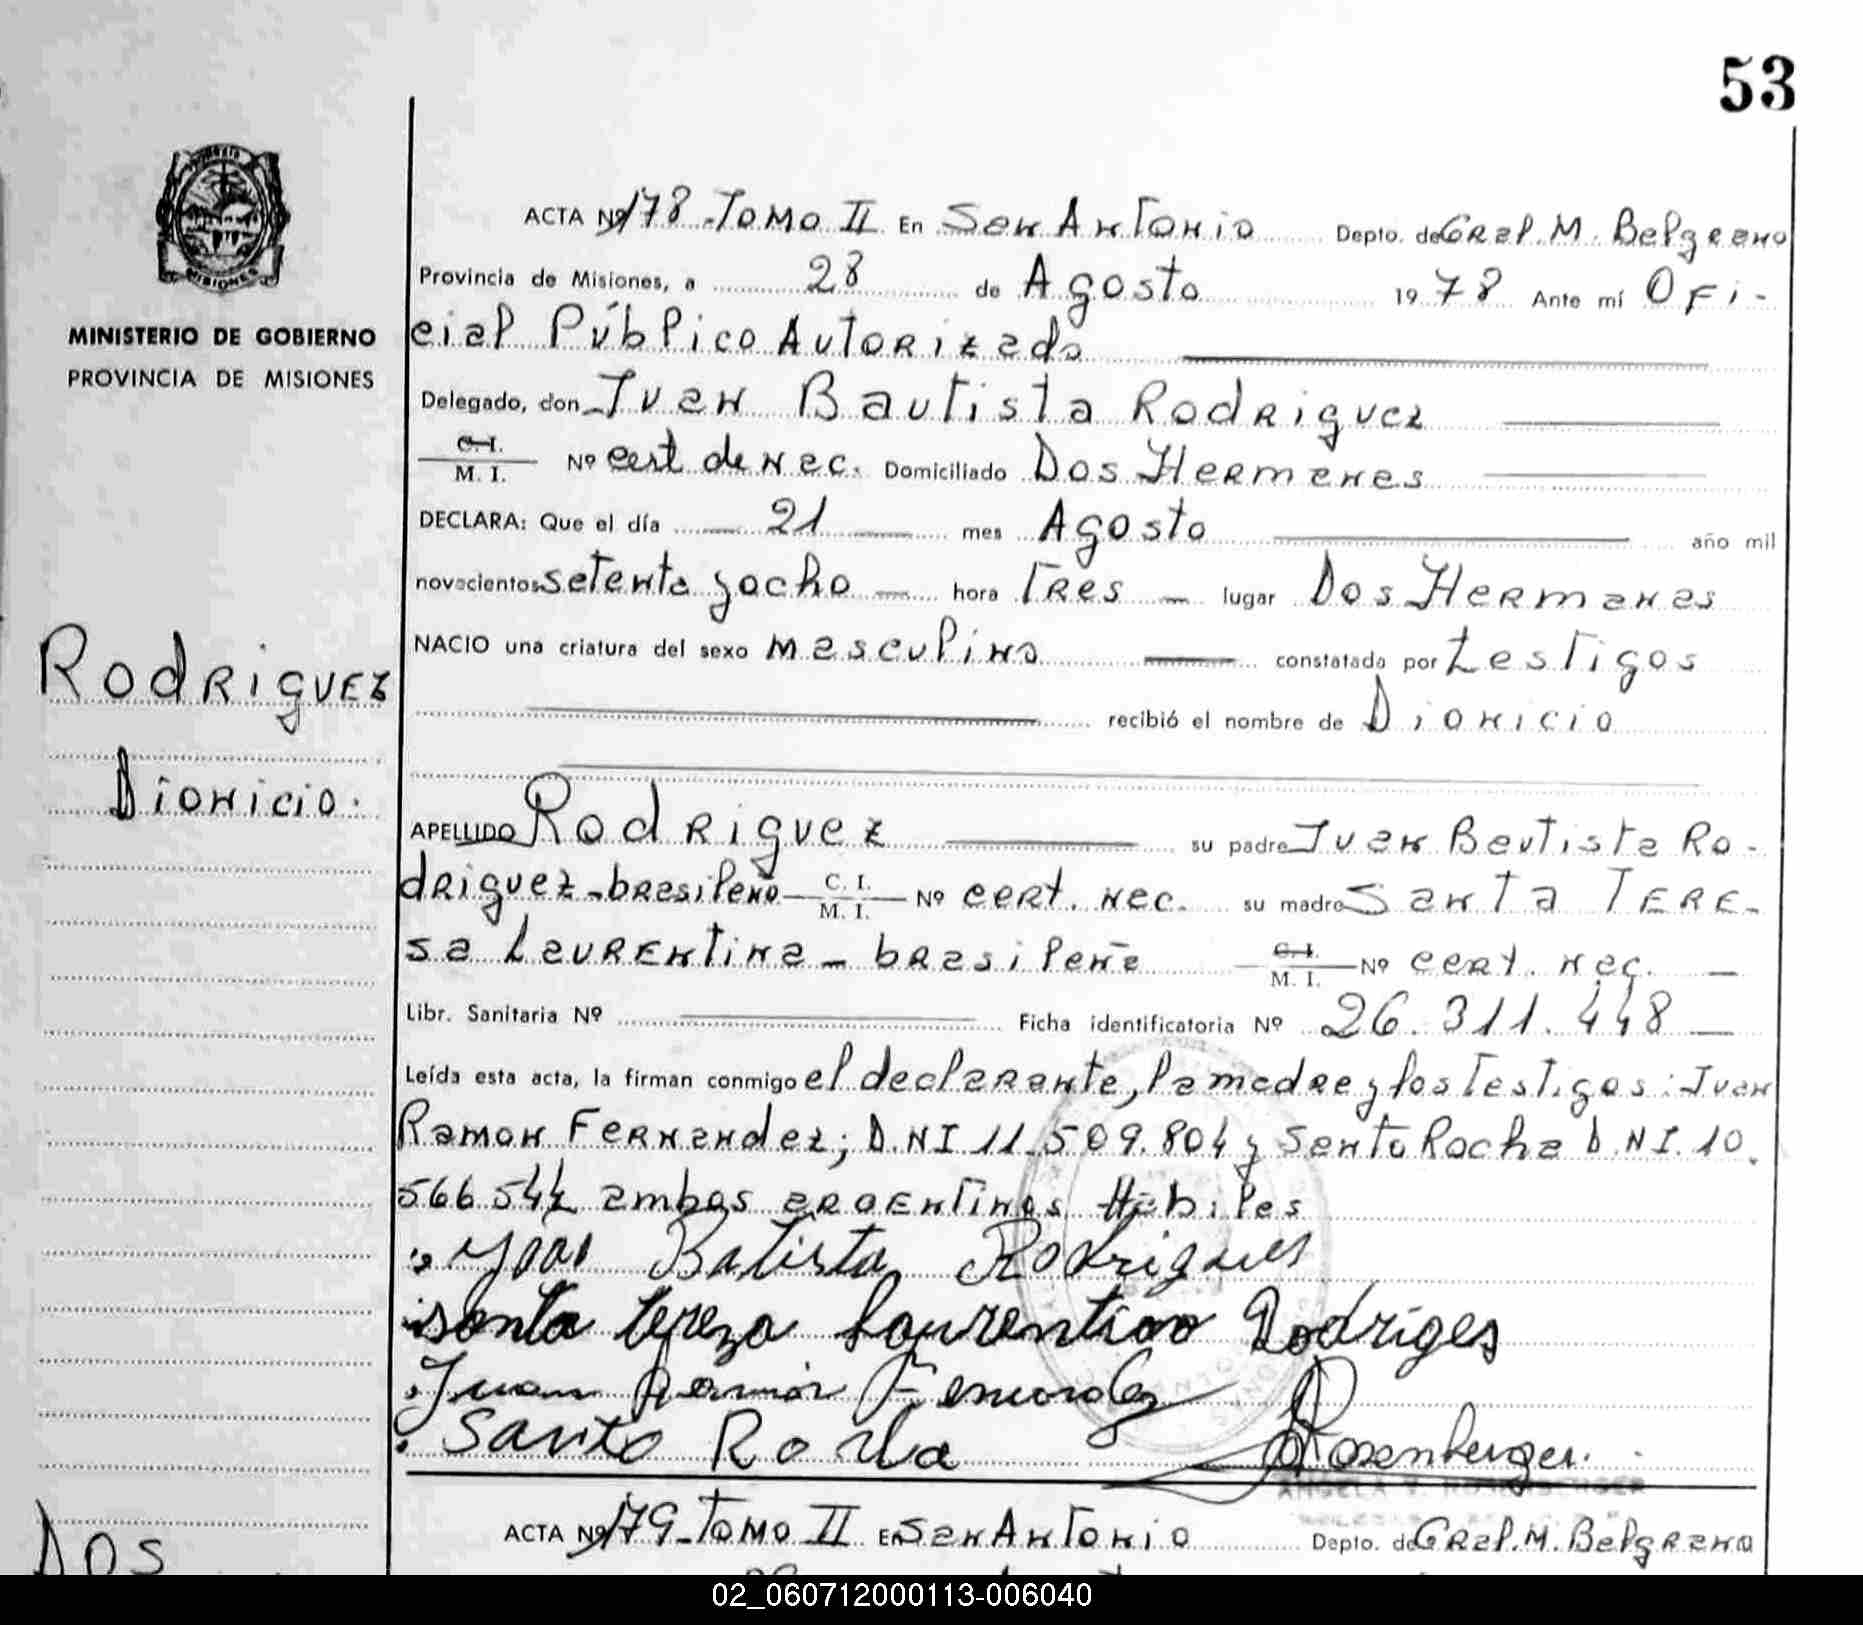 53
ACTA Nº 178 - Tomo II En San Antonio Depto. de Gral. M. Belgrano
Provincia de Misiones, a 28 de Agosto 1978 Ante mí Ofi-
cial Público Autorizado
MINISTERIO DE GOBIERNO
PROVINCIA DE MISIONES
MISIONES
Delegado, don Juan Bautista Rodriguez
C. I. M. I. Nº cert de nec. Domiciliado Dos Hermanas
DECLARA: Que el día 21 mes Agosto año mil
novecientos setenta y ocho hora tres lugar Dos Hermanas
NACIO una criatura del sexo masculino constatada por testigos
Rodriguez
recibió el nombre de Dionicio
Dionicio.
APELLIDO Rodriguez su padre Juan Bautista Ro-
driguez - brasileño C. I. M. I. Nº cert. nec. su madre Santa Tere-
sa Laurentina - brasileña C. I. M. I. Nº cert. nec. -
Libr. Sanitaria Nº Ficha identificatoria Nº 26.311.448
Leída esta acta, la firman conmigo el declarante, la madre y los testigos: Juan
Ramon Fernandez; D.N.I 11.509.804 y Santo Rocha D.N.I. 10.
566.544 ambos argentinos Hábiles
Joao Batista Rodrigues
santa tereza Laurentino Rodriges
Juan Ramón Fernandez
Santo Rocha Rosenberger.
ANGELA V. ROSENBERGER
ACTA Nº 179 - Tomo II En San Antonio Depto. de Gral. M. Belgrano
Dos
02_060712000113-006040